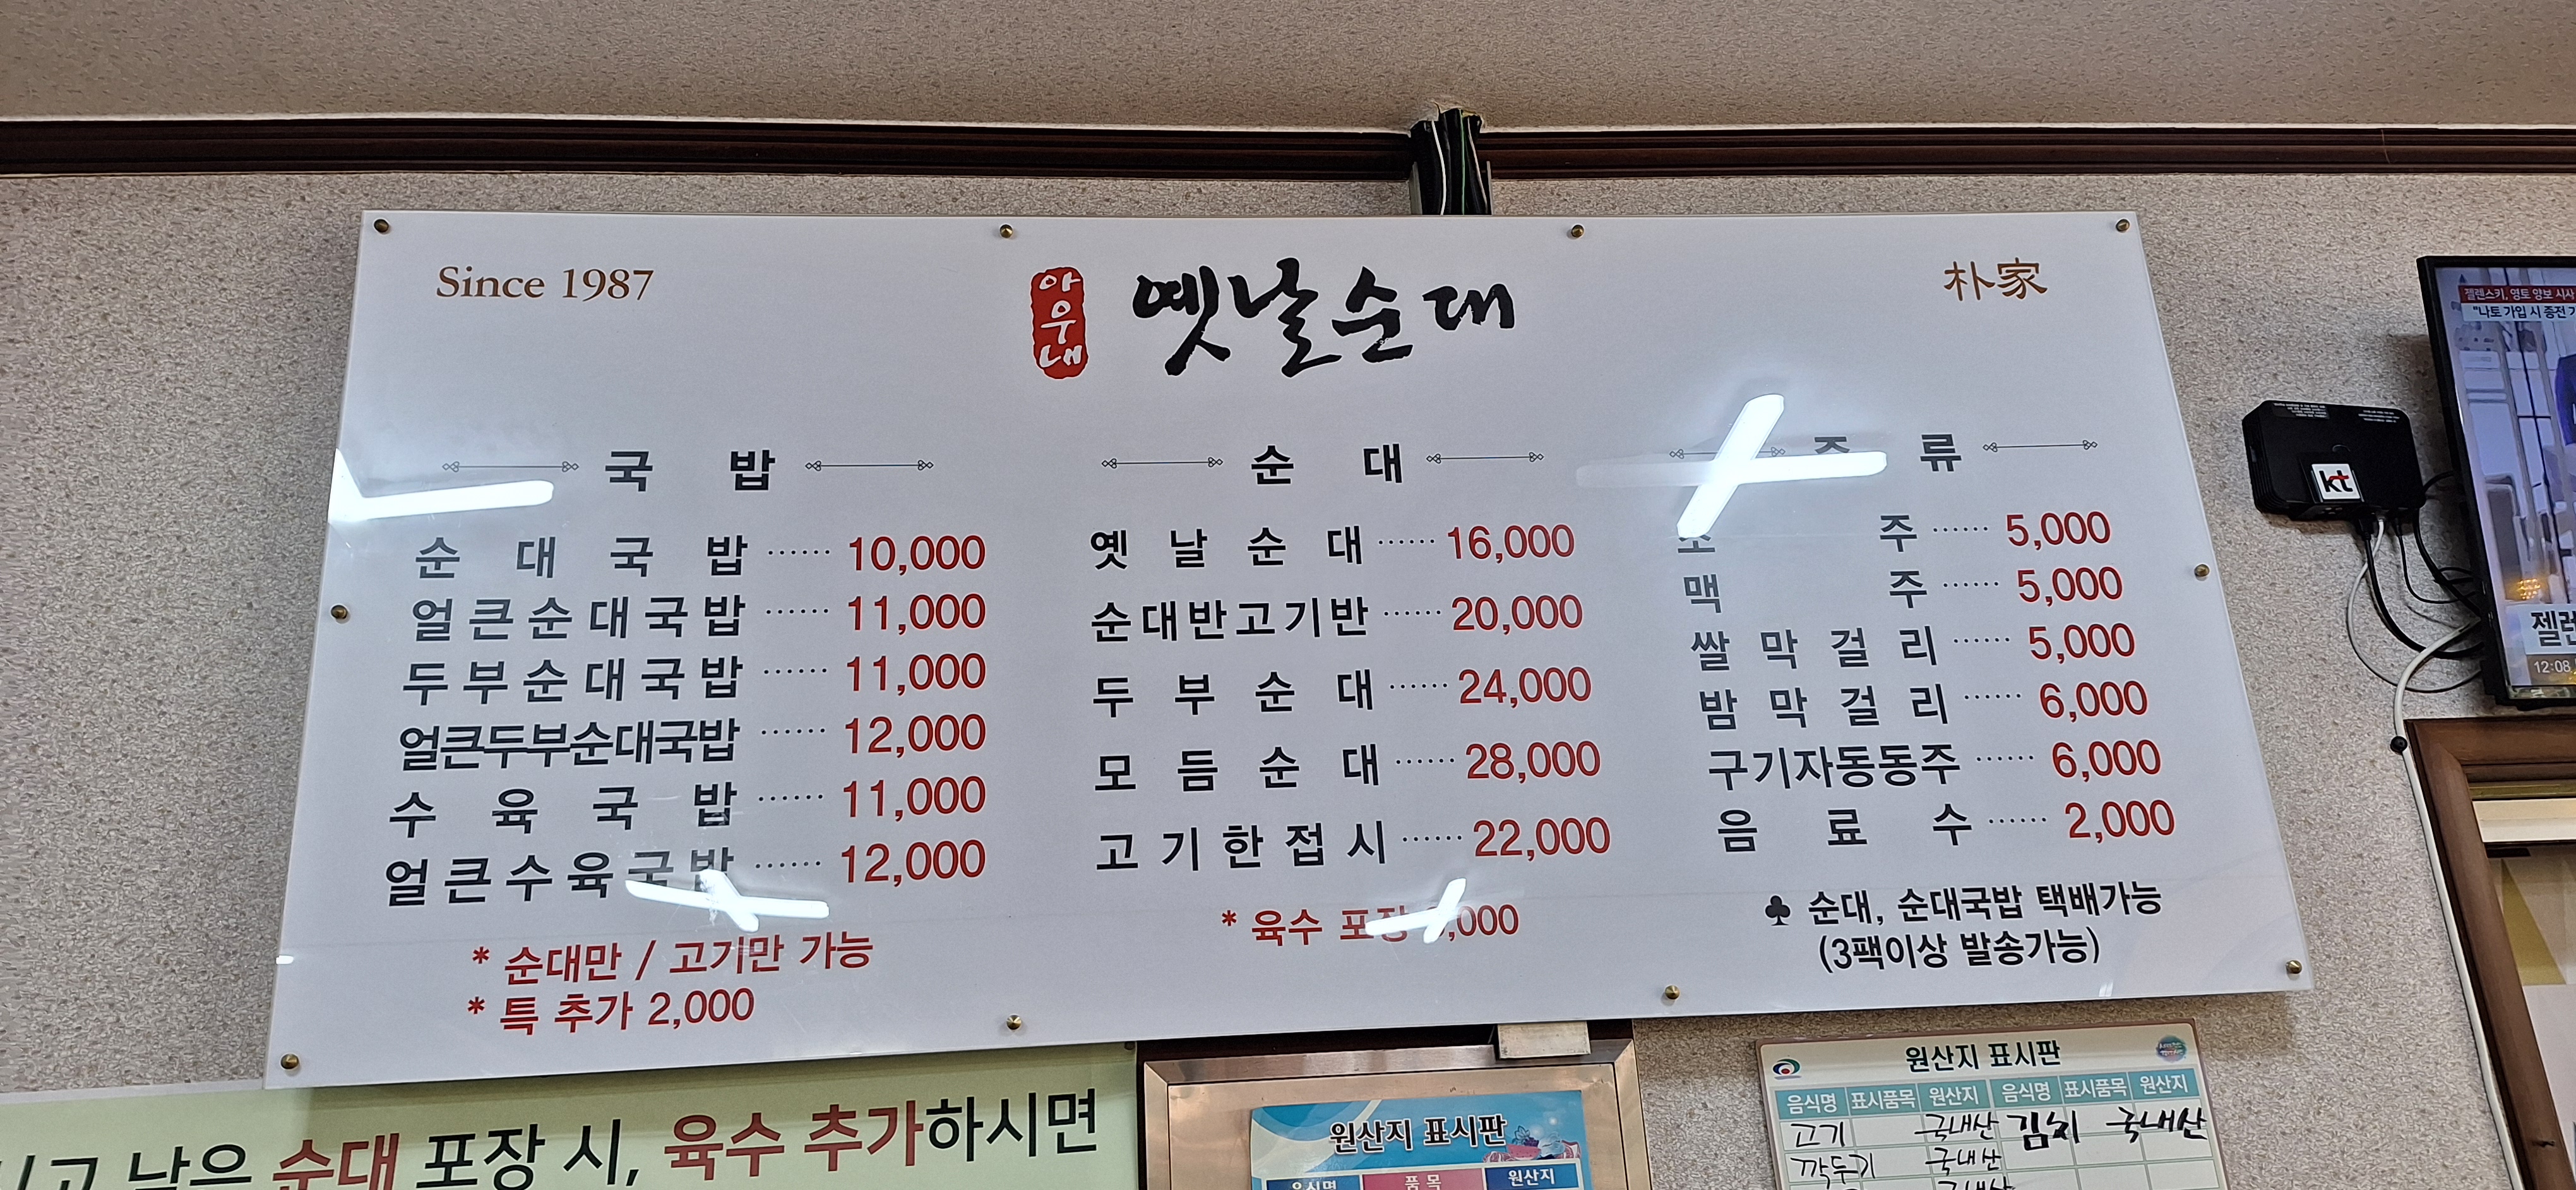 Since 1987
아우내 옛날순대
朴家
국밥
순대국밥 ······ 10,000
얼큰순대국밥 ······ 11,000
두부순대국밥 ······ 11,000
얼큰두부순대국밥 ······ 12,000
수육국밥 ······ 11,000
얼큰수육국밥 ······ 12,000
* 순대만 / 고기만 가능
* 특 추가 2,000
순대
옛날순대 ······ 16,000
순대반고기반 ······ 20,000
두부순대 ······ 24,000
모듬순대 ······ 28,000
고기한접시 ······ 22,000
* 육수 포장
주류
소주 ······ 5,000
맥주 ······ 5,000
쌀막걸리 ······ 5,000
밤막걸리 ······ 6,000
구기자동동주 ······ 6,000
음료수 ······ 2,000
♣ 순대, 순대국밥 택배가능
(3팩이상 발송가능)
kt
젤렌스키, 영토 양보 시사
"나토 가입 시 종전
12:08
남은 순대 포장 시, 육수 추가하시면
원산지 표시판
음식명 품목 원산지
원산지 표시판
음식명 표시품목 원산지 음식명 표시품목 원산지
고기 국내산 김치 국내산
깍두기 국내산